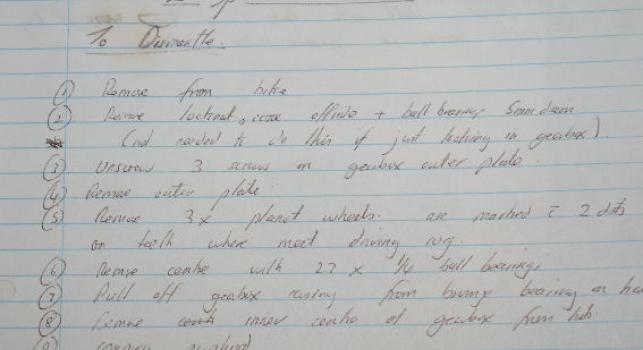 To Dismantle.
① Remove from bike
② Remove locknut, cone offside + ball bearings 5mm diam
(not needed to do this if just looking in gearbox)
③ Unscrew 3 screws on gearbox outer plate.
④ Remove outer plate
⑤ Remove 3x planet wheels. are marked c̄ 2 dots
on teeth where meet driving cog.
⑥ Remove centre with 27 x 1/4 ball bearings
⑦ Pull off gearbox casing from bearing on
⑧ Remove inner centre of gearbox from hub.
⑨